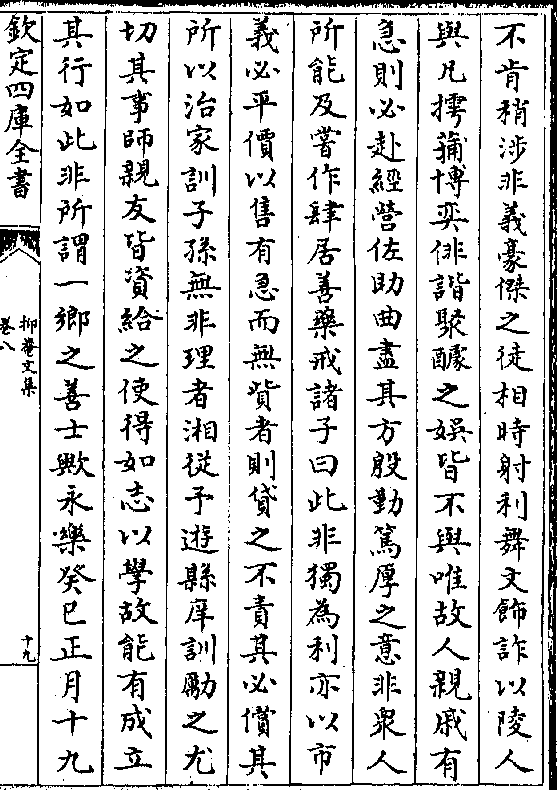 不肯稍涉非義豪傑之徒相時射利舞文飾詐以陵人
與凡摴蒱博奕俳諧聚醵之娯皆不與唯故人親戚有
急則必赴經營佐助曲盡其方殷勤篤厚之意非衆人
所能及嘗作肆居善藥戒諸子曰此非獨為利亦以市
義必平價以售有急而無貲者則貸之不責其必償其
所以治家訓子孫無非理者湘從予遊縣庠訓勵之尤
切其事師親友皆資給之使得如志以學故能有成立
其行如此非所謂一鄉之善士歟永樂癸巳正月十九
欽定四庫全書
抑菴文集
卷八
十九